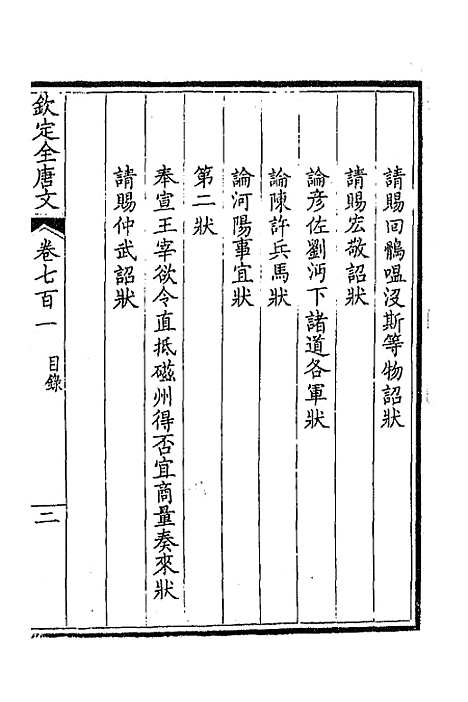 請賜回鶻嗢沒斯等物詔狀
請賜宏敬詔狀
論彥佐劉沔下諸道各軍狀
論陳許兵馬狀
論河陽事宜狀
第二狀
奉宣王宰欲令直抵磁州得否宜商量奏來狀
請賜仲武詔狀
欽定全唐文
卷七百一
目錄
二